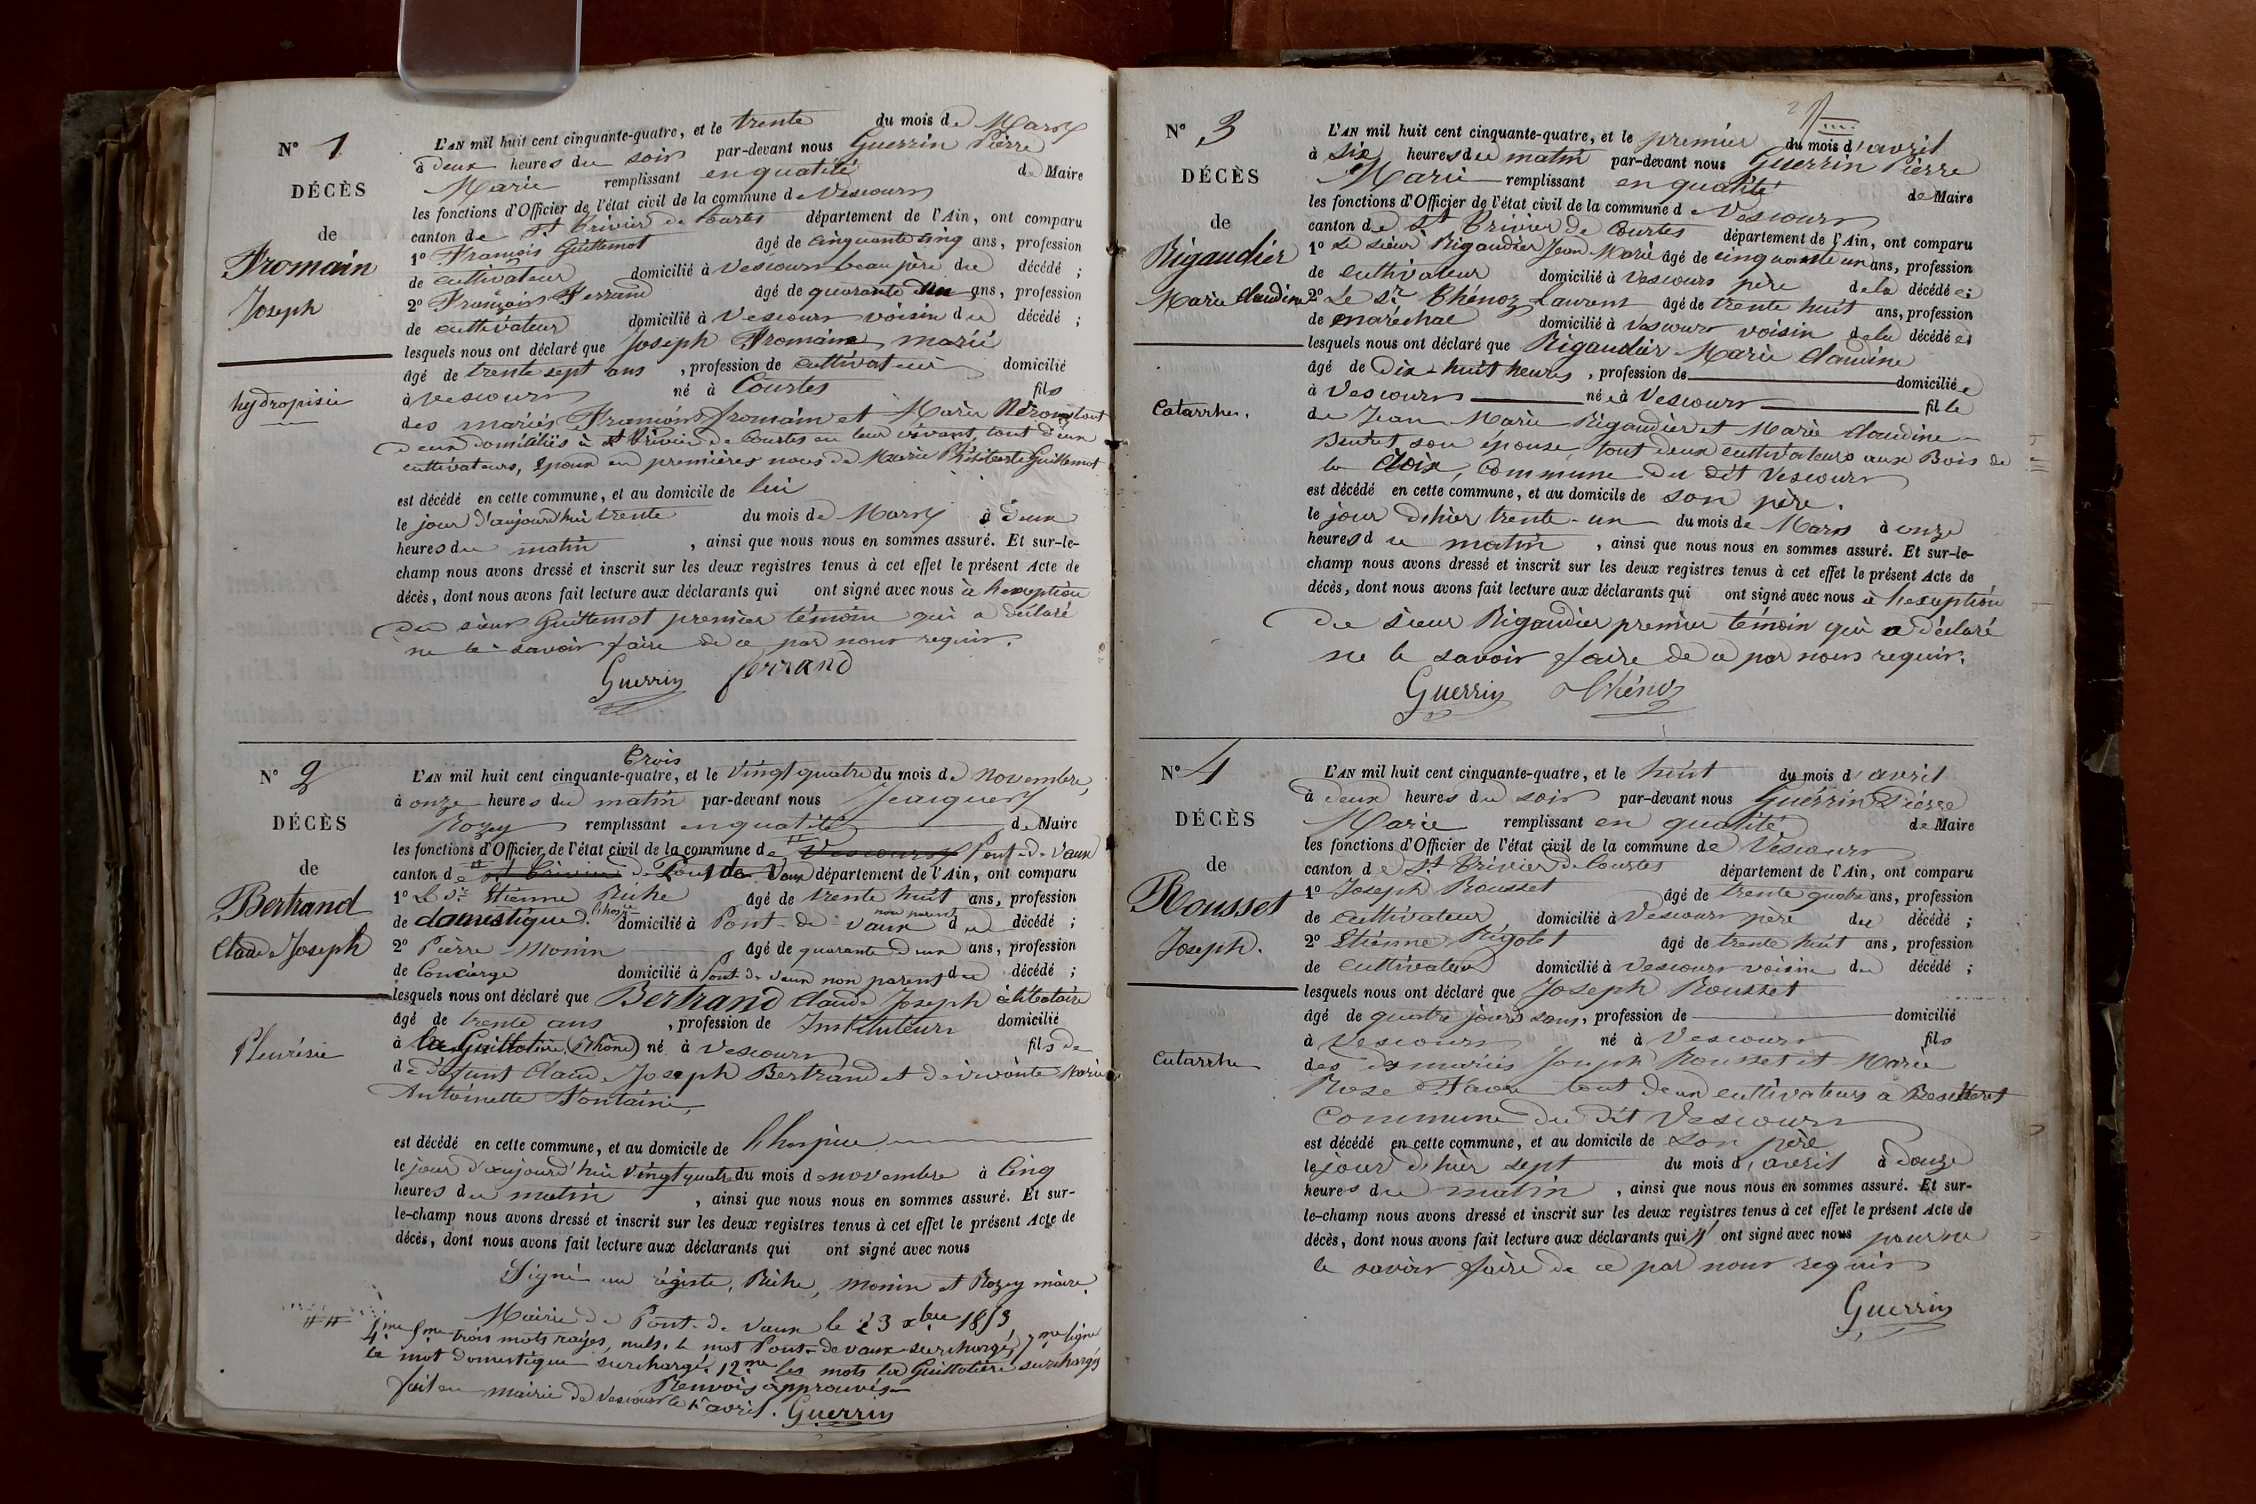 N° 1
DÉCÈS
de
Fromain
Joseph
hydropisie
L'AN mil huit cent cinquante-quatre, et le trente du mois de Mars
à deux heures du soir par-devant nous Guerrin Pierre
Marie remplissant en qualité de Maire
les fonctions d'Officier de l'état civil de la commune de Vescours
canton de St Trivier de Courtes département de l'Ain, ont comparu
1° François Guillemot âgé de cinquante cinq ans, profession
de cultivateur domicilié à Vescours beau père du décédé;
2° François Ferrand âgé de quarante ans, profession
de cultivateur domicilié à Vescours voisin du décédé;
lesquels nous ont déclaré que Joseph Fromain, marié
âgé de trente sept ans, profession de cultivateur domicilié
à Vescours né à Courtes fils
des mariés François Fromain et Marie tout
deux domiciliés à St Trivier de Courtes en leur vivant, tout deux
cultivateurs, époux en premières noces de Marie Guillemot
est décédé en cette commune, et au domicile de lui
le jour d'aujourd'hui trente du mois de Mars à deux
heures du matin, ainsi que nous nous en sommes assuré. Et sur-le-
champ nous avons dressé et inscrit sur les deux registres tenus à cet effet le présent Acte de
décès, dont nous avons fait lecture aux déclarants qui ont signé avec nous à l'exception
du sieur Guillemot premier témoin qui a déclaré
ne le savoir faire de ce par nous requis.
Guerrin ferrand
N° 2
DÉCÈS
de
Bertrand
Claude Joseph
Pleurésie
trois
L'AN mil huit cent cinquante-quatre, et le vingt quatre du mois de novembre,
à onze heures du matin par-devant nous Jacques
Rozey remplissant en qualité de Maire
les fonctions d'Officier de l'état civil de la commune de Vescours Pont-de-Vaux
canton de St Trivier de Pont de Vaux département de l'Ain, ont comparu
1° Le Sr Etienne Riche âgé de trente huit ans, profession
de domestique d. l'hospice domicilié à Pont-de-Vaux non parent du décédé;
2° Pierre Monin âgé de quarante deux ans, profession
de Concierge domicilié à Pont de Vaux non parent du décédé;
lesquels nous ont déclaré que Bertrand Claude Joseph célibataire
âgé de trente ans, profession de Instituteur domicilié
à la Guillotière (Rhône) né à Vescours fils de
de défunt Claude Joseph Bertrand et de vivante Marie
Antoinette Fontaine,
est décédé en cette commune, et au domicile de l'hospice
le jour d'aujourd'hui vingt quatre du mois de novembre à cinq
heures du matin, ainsi que nous nous en sommes assuré. Et sur-
le-champ nous avons dressé et inscrit sur les deux registres tenus à cet effet le présent Acte de
décès, dont nous avons fait lecture aux déclarants qui ont signé avec nous
Signé au registe, Riche, Monin et Rozey maire.
Mairie de Pont-de-Vaux le 23 xbre 1853
4me 5me trois mots rayés, nuls. le mot Pont-de-vaux surchargé, 7me ligne
le mot domestique surchargé. 12me les mots la Guillotière surchargés
Renvois approuvés
fait en mairie de Vescours le 1er avril. Guerrin
N° 3
DÉCÈS
de
Rigaudier
Marie Claudine
Catarrhe.
L'AN mil huit cent cinquante-quatre, et le premier du mois d'avril
à six heures du matin par-devant nous Guerrin Pierre
Marie remplissant en qualité de Maire
les fonctions d'Officier de l'état civil de la commune de Vescours
canton de St Trivier de Courtes département de l'Ain, ont comparu
1° Le sieur Rigaudier Jean Marie âgé de cinquante un ans, profession
de cultivateur domicilié à Vescours père de la décédée;
2° Le Sr Thénoz Laurent âgé de trente huit ans, profession
de maréchal domicilié à Vescours voisin de la décédée;
lesquels nous ont déclaré que Rigaudier Marie Claudine
âgé de Dix-huit heures, profession de domiciliée
à Vescours née à Vescours fille
de Jean Marie Rigaudier et Marie Claudine
son épouse, tout deux cultivateurs aux Bois de
la Croix, Commune du dit Vescours
est décédé en cette commune, et au domicile de son père.
le jour d'hier trente-un du mois de Mars à onze
heures du matin, ainsi que nous nous en sommes assuré. Et sur-le-
champ nous avons dressé et inscrit sur les deux registres tenus à cet effet le présent Acte de
décès, dont nous avons fait lecture aux déclarants qui ont signé avec nous à l'exception
du sieur Rigaudier premier témoin qui a déclaré
ne le savoir faire de ce par nous requis.
Guerrin Thénoz
N° 4
DÉCÈS
de
Rousset
Joseph.
Catarrhe
L'AN mil huit cent cinquante-quatre, et le huit du mois d'avril
à deux heures du soir par-devant nous Guérrin Pierre
Marie remplissant en qualité de Maire
les fonctions d'Officier de l'état civil de la commune de Vescours
canton de St Trivier de Courtes département de l'Ain, ont comparu
1° Joseph Rousset âgé de trente quatre ans, profession
de cultivateur domicilié à Vescours père du décédé;
2° Etienne Rigolet âgé de trente huit ans, profession
de cultivateur domicilié à Vescours voisin du décédé;
lesquels nous ont déclaré que Joseph Rousset
âgé de quatre jours sans, profession de domicilié
à Vescours né à Vescours fils
des mariés Joseph Rousset et Marie
Rose tout deux cultivateurs à
Commune du dit Vescours
est décédé en cette commune, et au domicile de son père
le jour d'hier sept du mois d'avril à douze
heures du matin, ainsi que nous nous en sommes assuré. Et sur-
le-champ nous avons dressé et inscrit sur les deux registres tenus à cet effet le présent Acte de
décès, dont nous avons fait lecture aux déclarants qui n'ont signé avec nous pour ne
le savoir faire de ce par nous requis
Guerrin